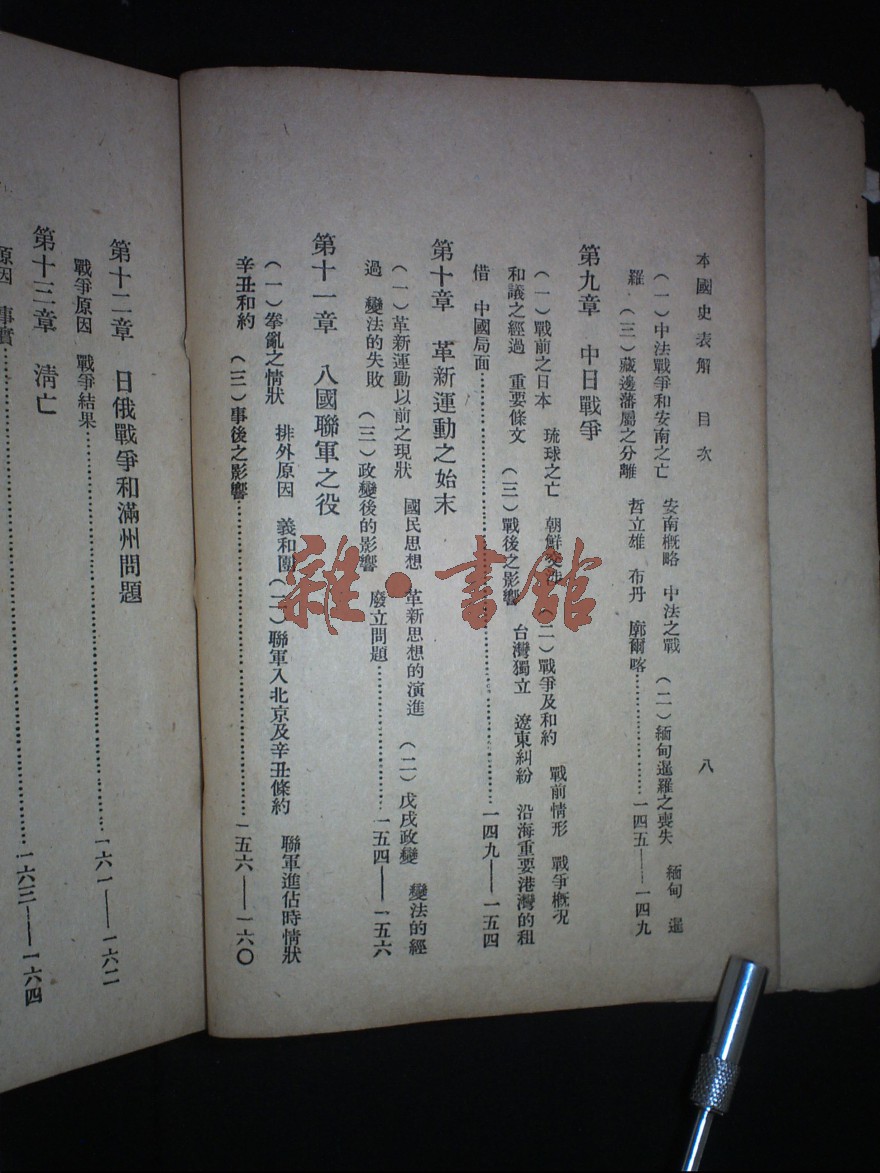 本國史表解　目次　八
（一）中法戰爭和安南之亡　安南槪略　中法之戰　（二）緬甸暹羅之喪失　緬甸　暹
羅　（三）藏邊藩屬之分離　哲立雄　布丹　廓爾喀⋯⋯⋯⋯一四五——一四九
第九章　中日戰爭
（一）戰前之日本　琉球之亡　朝鮮交涉　（二）戰爭及和約　戰前情形　戰爭槪況
和議之經過　重要條文　（三）戰後之影響　台灣獨立　遼東糾紛　沿海重要港灣的租
借　中國局面⋯⋯⋯⋯一四九——一五四
第十章　革新運動之始末
（一）革新運動以前之現狀　國民思想　革新思想的演進　（二）戊戌政變　變法的經
過　變法的失敗　（三）政變後的影響　廢立問題⋯⋯⋯⋯一五四——一五六
第十一章　八國聯軍之役
（一）拳亂之情狀　排外原因　義和團（二）聯軍入北京及辛丑條約　聯軍進佔時情狀
辛丑和約　（三）事後之影響⋯⋯⋯⋯一五六——一六〇
第十二章　日俄戰爭和滿州問題
戰爭原因　戰爭結果⋯⋯⋯⋯一六一——一六二
第十三章　淸亡
原因　事實⋯⋯⋯⋯一六三——一六四
雜·書館